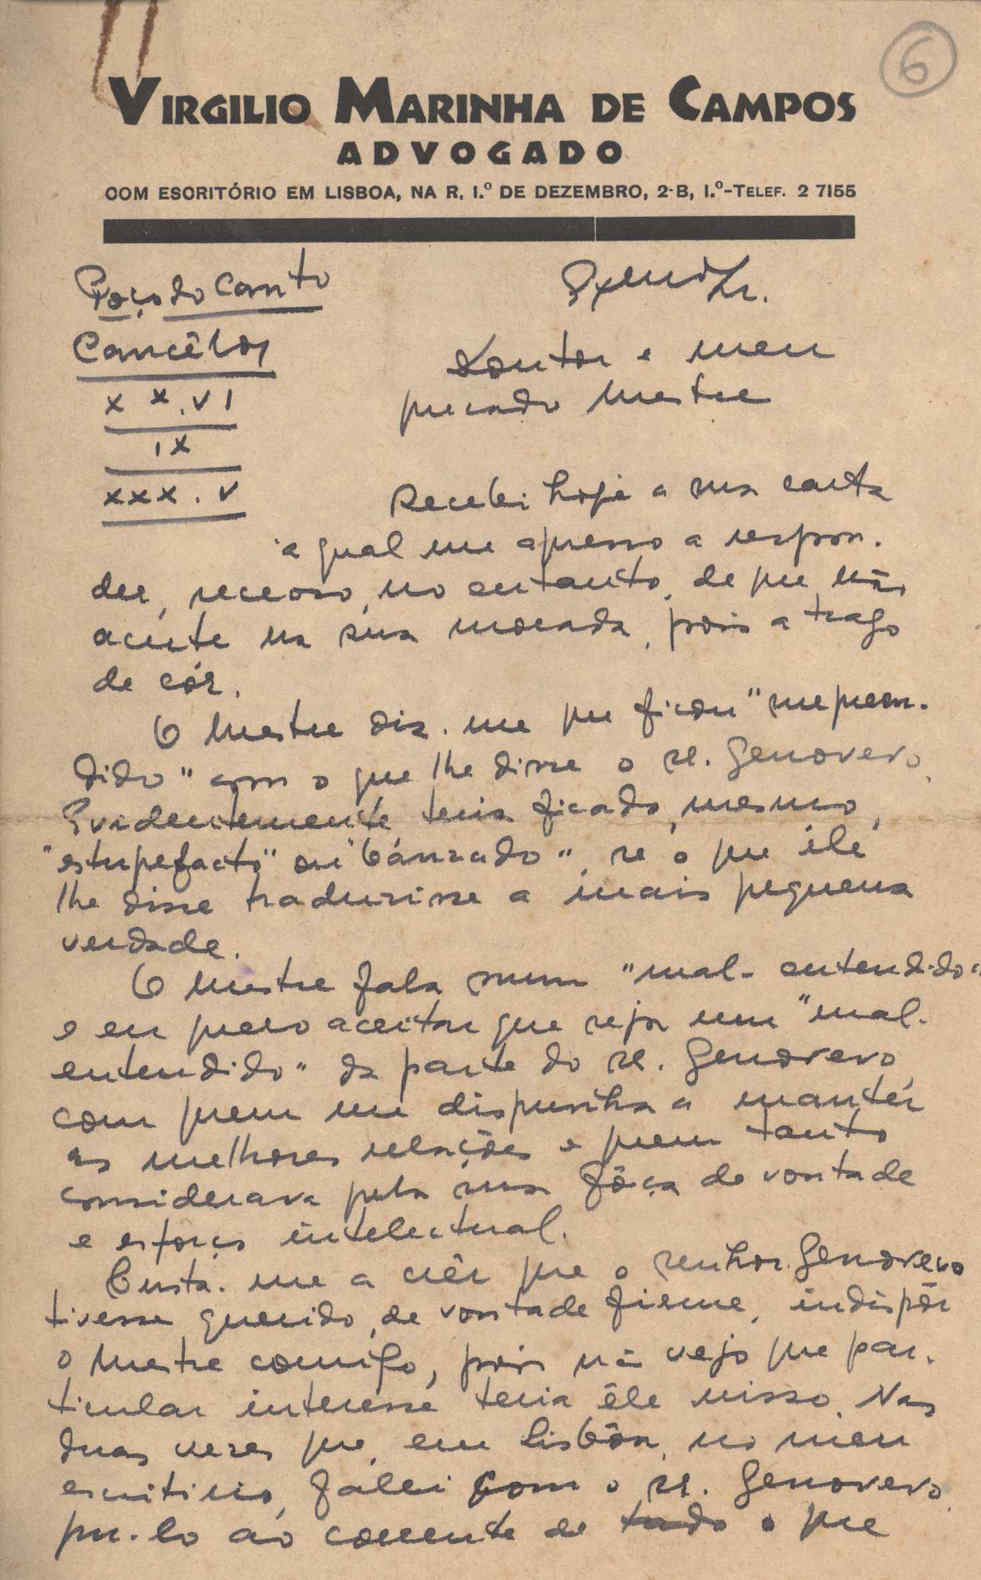 6
VIRGILIO MARINHA DE CAMPOS
ADVOGADO
COM ESCRITÓRIO EM LISBOA, NA R. 1.º DE DEZEMBRO, 2-B, 1.º-TELEF. 2 7155
Poço do Canto
Cancêlos
XX.VI
IX
XXX.V
Exmo Sr.
Doutor e meu
prezado Mestre
Recebi hoje a sua carta
à qual me apresso a respon-
der, receoso, no entanto, de que não
acerte na sua morada, pois a trago
de cór.
O Mestre diz-me que ficou "surpreen-
dido" com o que lhe disse o sr. Genovevo.
Evidentemente teria ficado, mesmo,
"estupefacto" ou "banzado", se o que êle
lhe disse traduzisse a mais pequena
verdade.
O Mestre fala num "mal-entendido"
e eu quero aceitar que seja um "mal-
entendido" da parte do sr. Genovevo
com quem me dispunha a mantêr
as melhores relações e quem tanto
considerava pela sua fôrça de vontade
e esforço intelectual.
Custa-me a crêr que o senhor Genovevo
tivesse querido, de vontade firme, indispôr
o Mestre comigo, pois não vejo que par-
ticular interesse teria êle nisso. Nas
duas vezes que, em Lisbôa, no meu
escritório, falei com o sr. Genovevo
pu-lo ao corrente de tudo o que